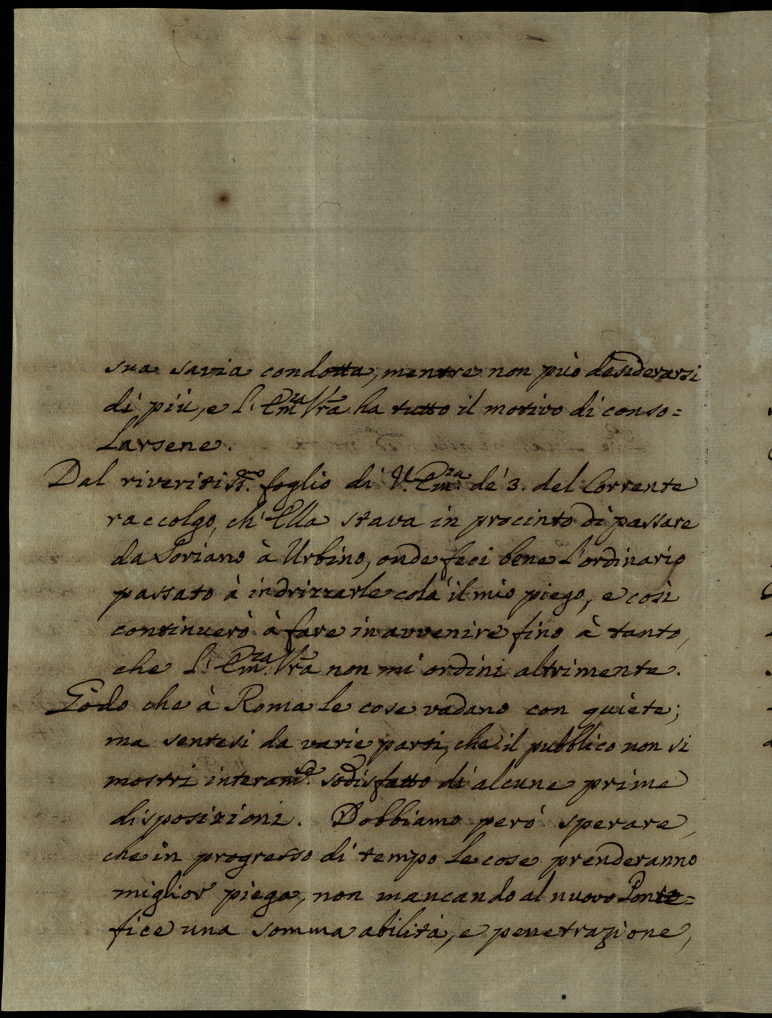 sua savia condotta, mentre non può desiderarsi
di più, e l'Em:za Vra ha tutto il motivo di conso=
larsene.
Dal riveritiss:mo foglio di V: Em:za de' 3. del Corrente
raccolgo, ch'Ella stava in procinto di passare
da Soriano à Urbino, onde feci bene l'ordinario
passato à indrizzarle colà il mio piego, e così
continuerò à fare in avvenire fino à tanto,
che l'Em:za Vra non mi ordini altrimente.
Godo che à Roma le cose vadano con quiete;
ma sentesi da varie parti, che il pubblico non si
mostri interam:e sodisfatto di alcune prime
disposizioni. Dobbiamo però sperare,
che in progresso di tempo le cose prenderanno
miglior piega, non mancando al nuovo Ponte=
fice una somma abilità, e penetrazione,